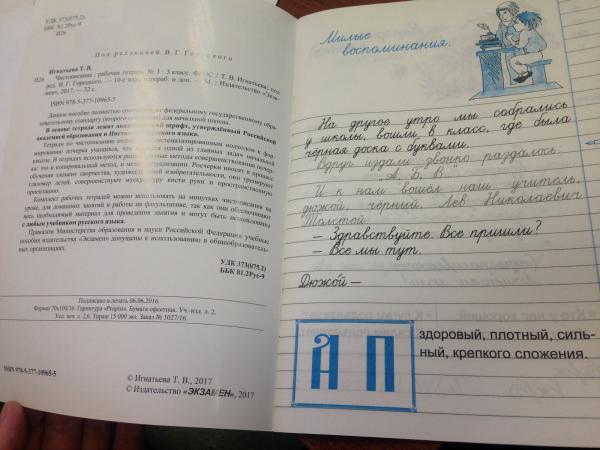 УДК 373(075.2)
ББК 81.2Рус-9
И26
Под редакцией В. Г. Горецкого
Игнатьева Т. В.
И26 Чистописание : рабочая тетрадь № 3 : 3 класс. ФГОС / Т. В. Игнатьева; под
ред. В. Г. Горецкого. — 10-е изд., перераб. и доп. — М. : Издательство «Экза-
мен», 2017. — 32 с.
ISBN 978-5-377-10965-5
Данное пособие полностью соответствует федеральному государственному образо-
вательному стандарту (второго поколения) для начальной школы.
В основе тетради лежит академический шрифт, утверждённый Российской
академией образования и языка.
Тетради по чистописанию систематизированным подходом к фор-
мированию почерка учащихся, что является одной из главных задач начальной
школы. В тетрадях используются различные методы совершенствования почерка,
как то и копировальный метод, и метод штриховки. Росчерки вносят в процесс
обучения элемент творчества, художественной изобретательности, они тренируют
глазомер детей, совершенствуют мускулатуру кисти руки и пространственную
ориентацию.
Комплект рабочих тетрадей можно использовать на минутках чистописания на
уроке, для домашних занятий и работы на факультативе, так как они обеспечивают
весь необходимый материал для проведения занятия и могут быть использованы
с любым учебником русского языка.
Приказом Министерства образования и науки Российской Федерации учебные
пособия издательства «Экзамен» допущены к использованию в общеобразователь-
ных организациях.
УДК 373(075.2)
ББК 81.2Рус-9
Подписано в печать 06.06.2016.
Формат 70х100/16. Гарнитура «Propis». Бумага офсетная. Уч.-изд. л. 2.
Усл. печ. л. 2,6. Тираж 15 000 экз. Заказ № 1027/16.
ISBN 978-5-377-10965-5
© Игнатьева Т. В., 2017
© Издательство «ЭКЗАМЕН», 2017
Милые
воспоминания.
На другое утро мы собрались
у школы, вошли в класс, где была
чёрная доска с буквами.
Вдруг издали звонко раздалось:
"А, Б, В..."
И к нам вошёл наш учитель,
дюжой, чёрный, Лев Николаевич
Толстой.
— Здравствуйте. Все пришли?
— Все мы тут.
Дюжо́й —
А П
здоровый, плотный, силь-
ный, крепкого сложения.